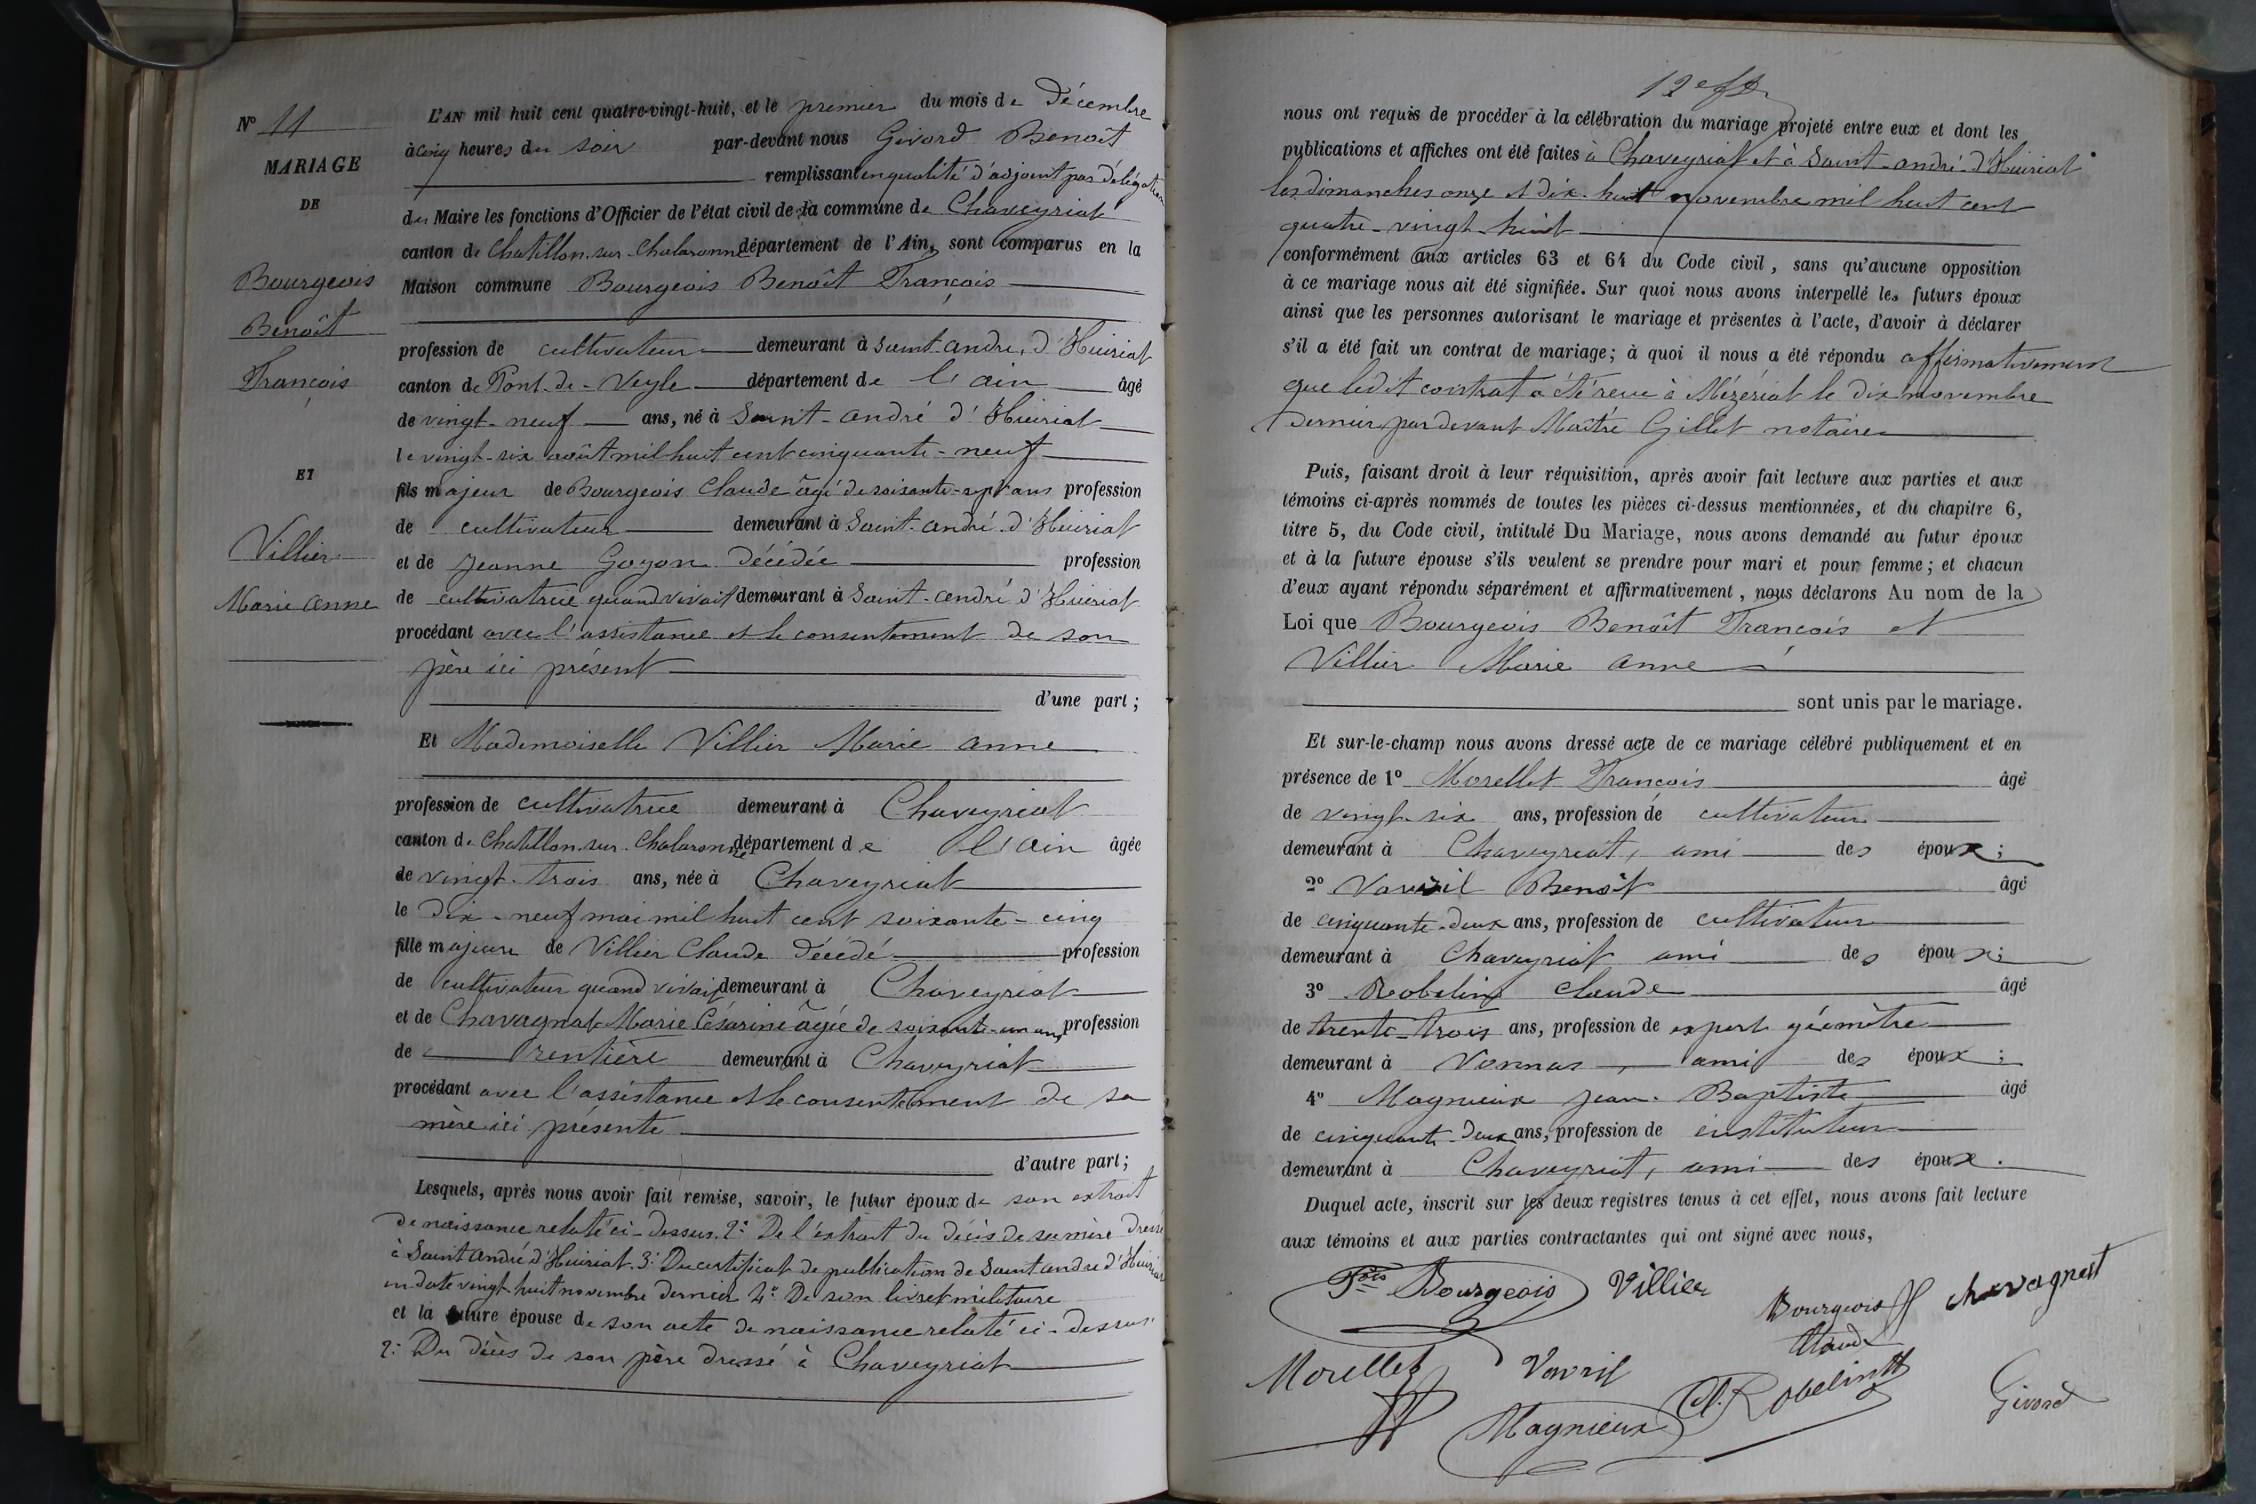 N° 11
MARIAGE
DE
Bourgeois
Benoît
François
ET
Villier
Marie Anne
L'AN mil huit cent quatre-vingt-huit, et le premier du mois de Décembre
à cinq heures du soir par-devant nous Givord Benoît
remplissant en qualité d'adjoint par délégation
du Maire les fonctions d'Officier de l'état civil de la commune de Chaveyriat
canton de Chatillon-sur-Chalaronne département de l'Ain, sont comparus en la
Maison commune Bourgeois Benoît François
profession de cultivateur demeurant à Saint-André, d'Huiriat
canton de Pont-de-Veyle département de l'ain âgé
de vingt-neuf ans, né à Saint-André d'Huiriat
le vingt-six août mil huit cent cinquante-neuf
fils majeur de Bourgeois Claude âgé de soixante-sept ans profession
de cultivateur demeurant à Saint-André-d'Huiriat
et de Jeanne Goyon décédée profession
de cultivatrice quand vivait demeurant à Saint-André d'Huiriat
procédant avec l'assistance et le consentement de son
père ici présent
d'une part;
Et Mademoiselle Villier Marie Anne
profession de cultivatrice demeurant à Chaveyriat
canton de Chatillon-sur-Chalaronne département de l'ain âgée
de vingt-trois ans, née à Chaveyriat
le dix-neuf mai mil huit cent soixante-cinq
fille majeure de Villier Claude décédé profession
de cultivateur quand vivait demeurant à Chaveyriat
et de Chavagnat Marie Césarine âgée de soixante-un ans profession
de rentière demeurant à Chaveyriat
procédant avec l'assistance et le consentement de sa
mère ici présente
d'autre part;
Lesquels, après nous avoir fait remise, savoir, le futur époux de son extrait
de naissance relaté ci-dessus. 2° De l'extrait du décès de sa mère dressé
à Saint André d'Huiriat. 3° Du certificat de publication de Saint André d'Huiriat
en date vingt-huit novembre dernier 4° De son livret militaire
et la future épouse de son acte de naissance relaté ci-dessus
2° Du décès de son père dressé à Chaveyriat
nous ont requis de procéder à la célébration du mariage projeté entre eux et dont les
publications et affiches ont été faites à Chaveyriat et à Saint-André-d'Huiriat
les dimanches onze et dix-huit novembre mil huit cent
quatre-vingt-huit
conformément aux articles 63 et 64 du Code civil, sans qu'aucune opposition
à ce mariage nous ait été signifiée. Sur quoi nous avons interpellé les futurs époux
ainsi que les personnes autorisant le mariage et présentes à l'acte, d'avoir à déclarer
s'il a été fait un contrat de mariage; à quoi il nous a été répondu affirmativement
que ledit contrat a été reçu à Mézériat le dix novembre
dernier par devant Maître Gillet notaire
Puis, faisant droit à leur réquisition, après avoir fait lecture aux parties et aux
témoins ci-après nommés de toutes les pièces ci-dessus mentionnées, et du chapitre 6,
titre 5, du Code civil, intitulé Du Mariage, nous avons demandé au futur époux
et à la future épouse s'ils veulent se prendre pour mari et pour femme; et chacun
d'eux ayant répondu séparément et affirmativement, nous déclarons Au nom de la
Loi que Bourgeois Benoît François et
Villier Marie Anne
sont unis par le mariage.
Et sur-le-champ nous avons dressé acte de ce mariage célébré publiquement et en
présence de 1° Morellet François âgé
de vingt-six ans, profession de cultivateur
demeurant à Chaveyriat, ami des époux;
2° Vavril Benoît âgé
de cinquante-deux ans, profession de cultivateur
demeurant à Chaveyriat ami des époux;
3° Robelin Claude âgé
de trente-trois ans, profession de expert géomètre
demeurant à Vonnas, ami des époux;
4° Magnieux Jean-Baptiste âgé
de cinquante-deux ans, profession de instituteur
demeurant à Chaveyriat, ami des époux.
Duquel acte, inscrit sur les deux registres tenus à cet effet, nous avons fait lecture
aux témoins et aux parties contractantes qui ont signé avec nous,
Bourgeois Villier Bourgeois Claude Chavagnat
Morellet Vavril Cl. Robelin
Magnieux Givord